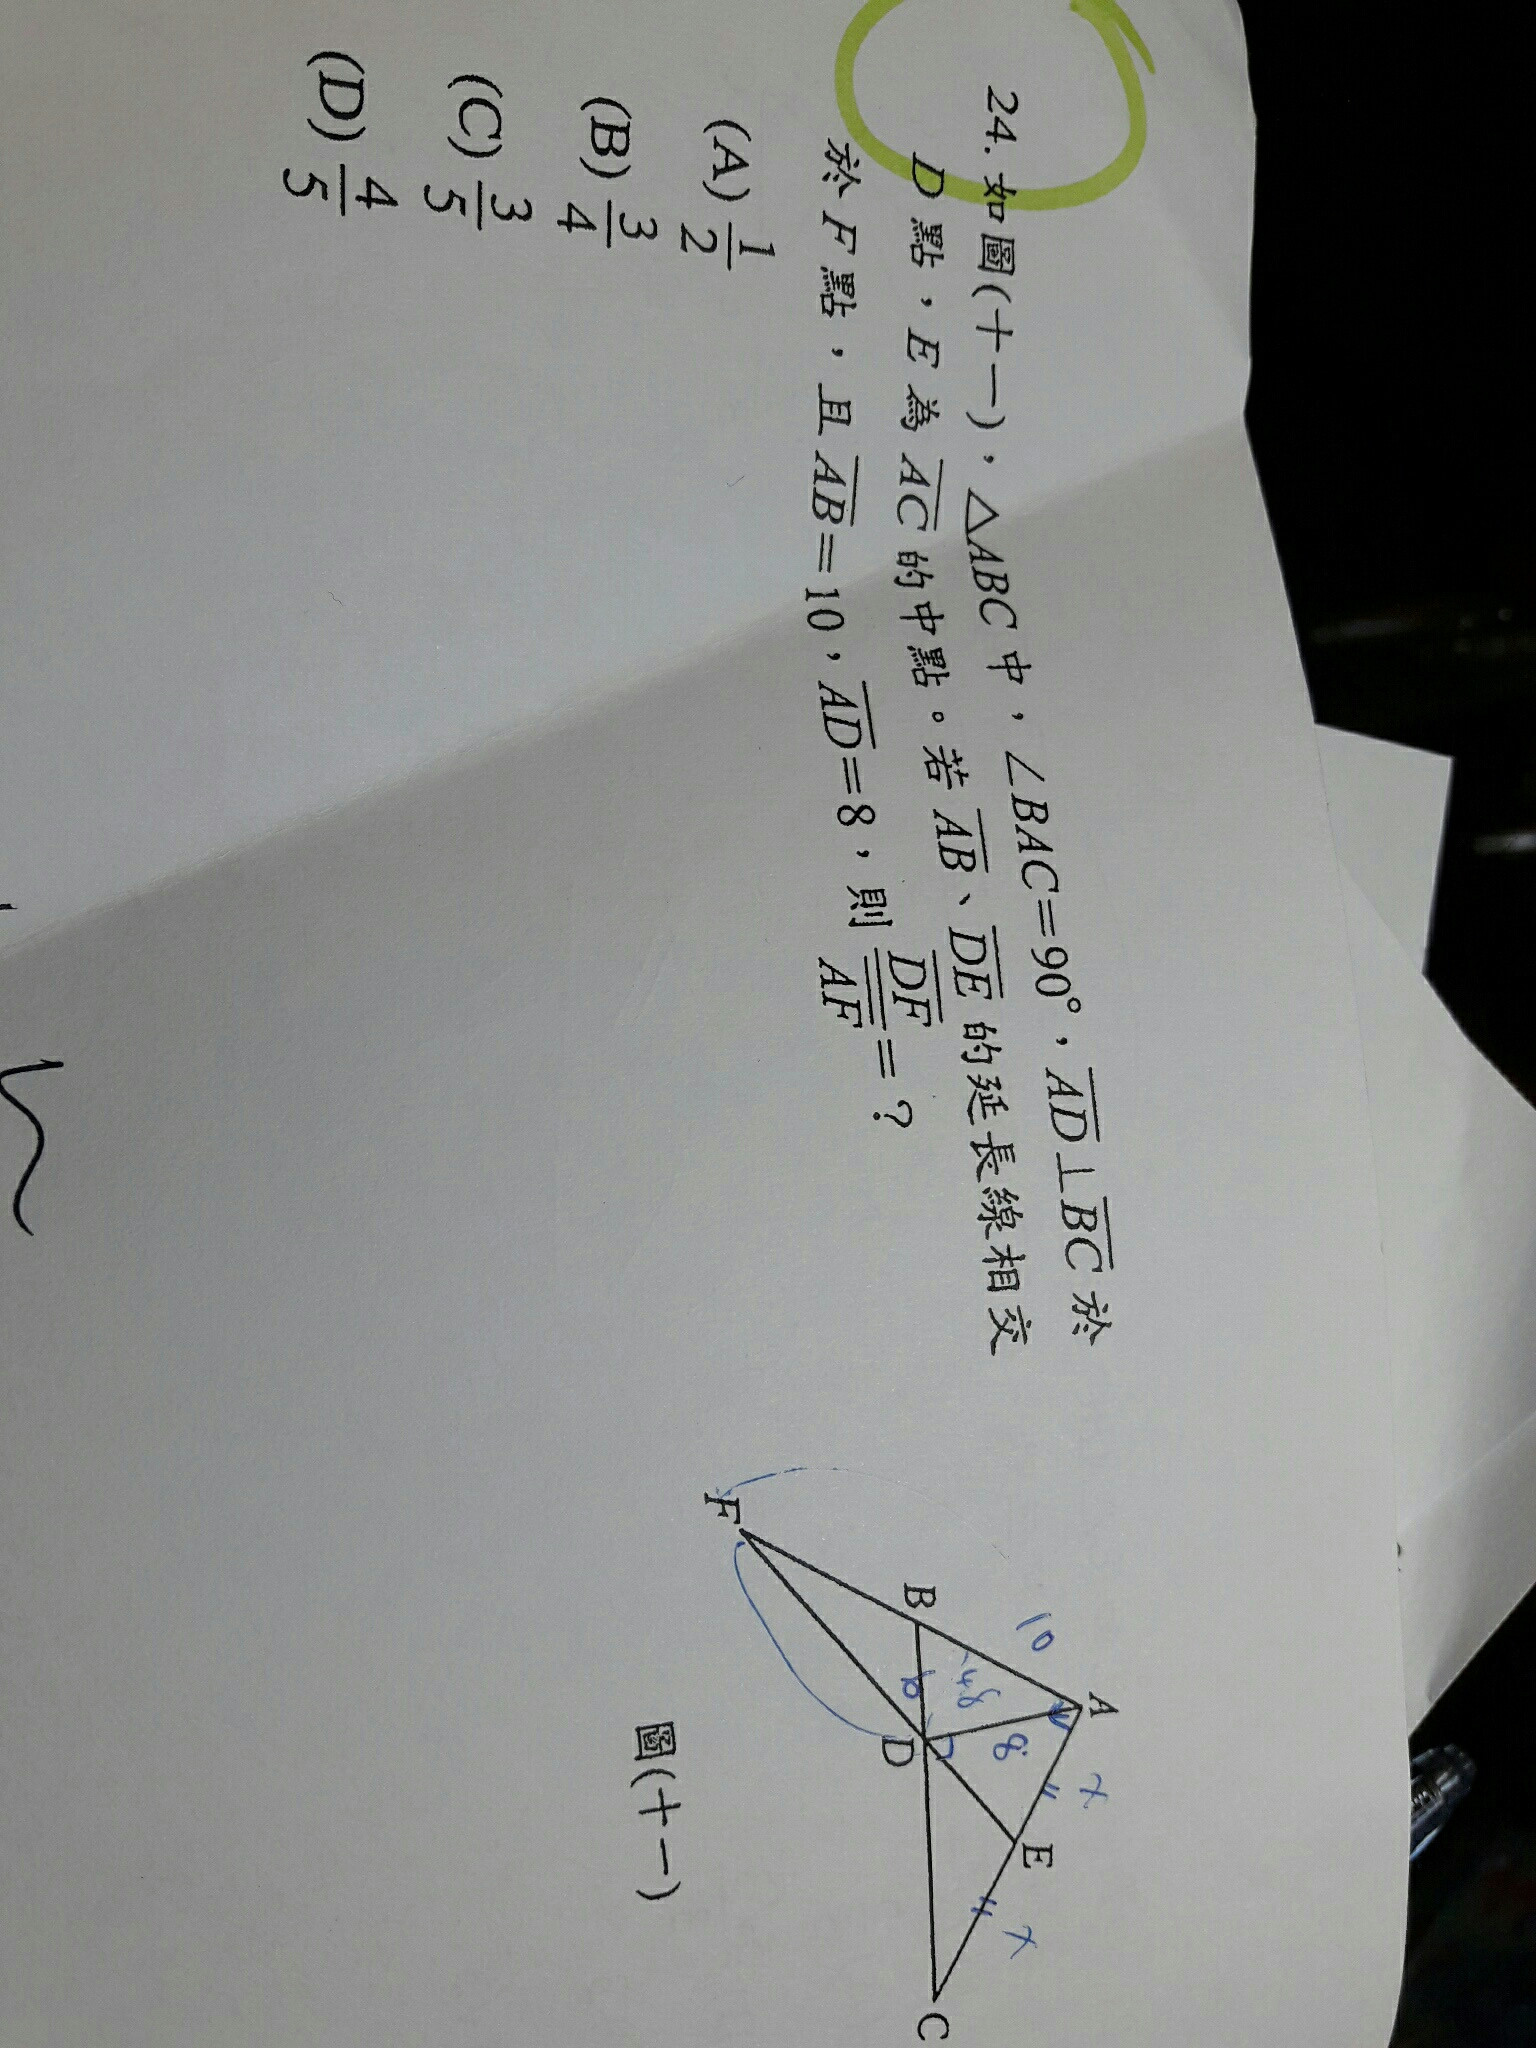 24. 如圖(十一)，△ABC中，∠BAC=90°，AD⊥BC 於
D 點，E 為 AC 的中點。若 AB、DE 的延長線相交
於 F 點，且 AB=10，AD=8，則 DF/AF=？
(A) 1/2
(B) 3/4
(C) 3/5
(D) 4/5
A
10
x
4.8
8
B
6
E
F
D
x
C
圖(十一)